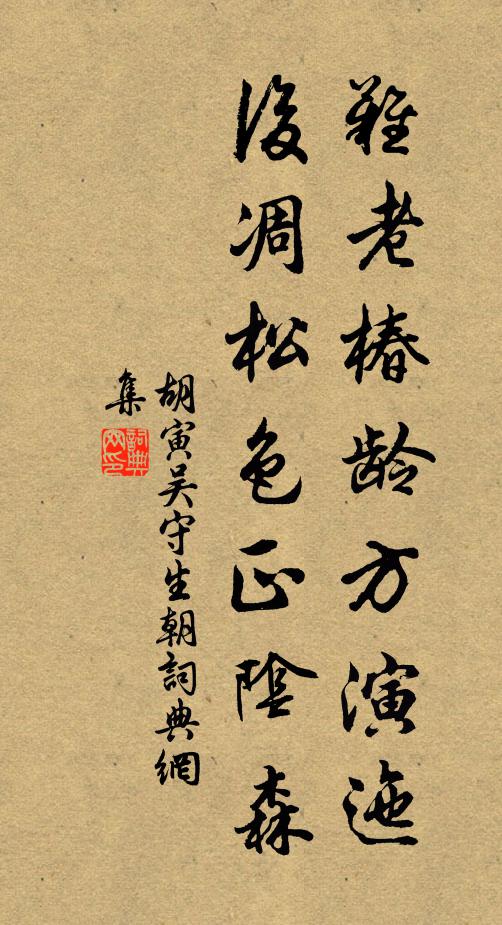 難老椿龄方演迤
後凋松色正陰森
胡寅吴守生朝詞典網
集
詞典网印